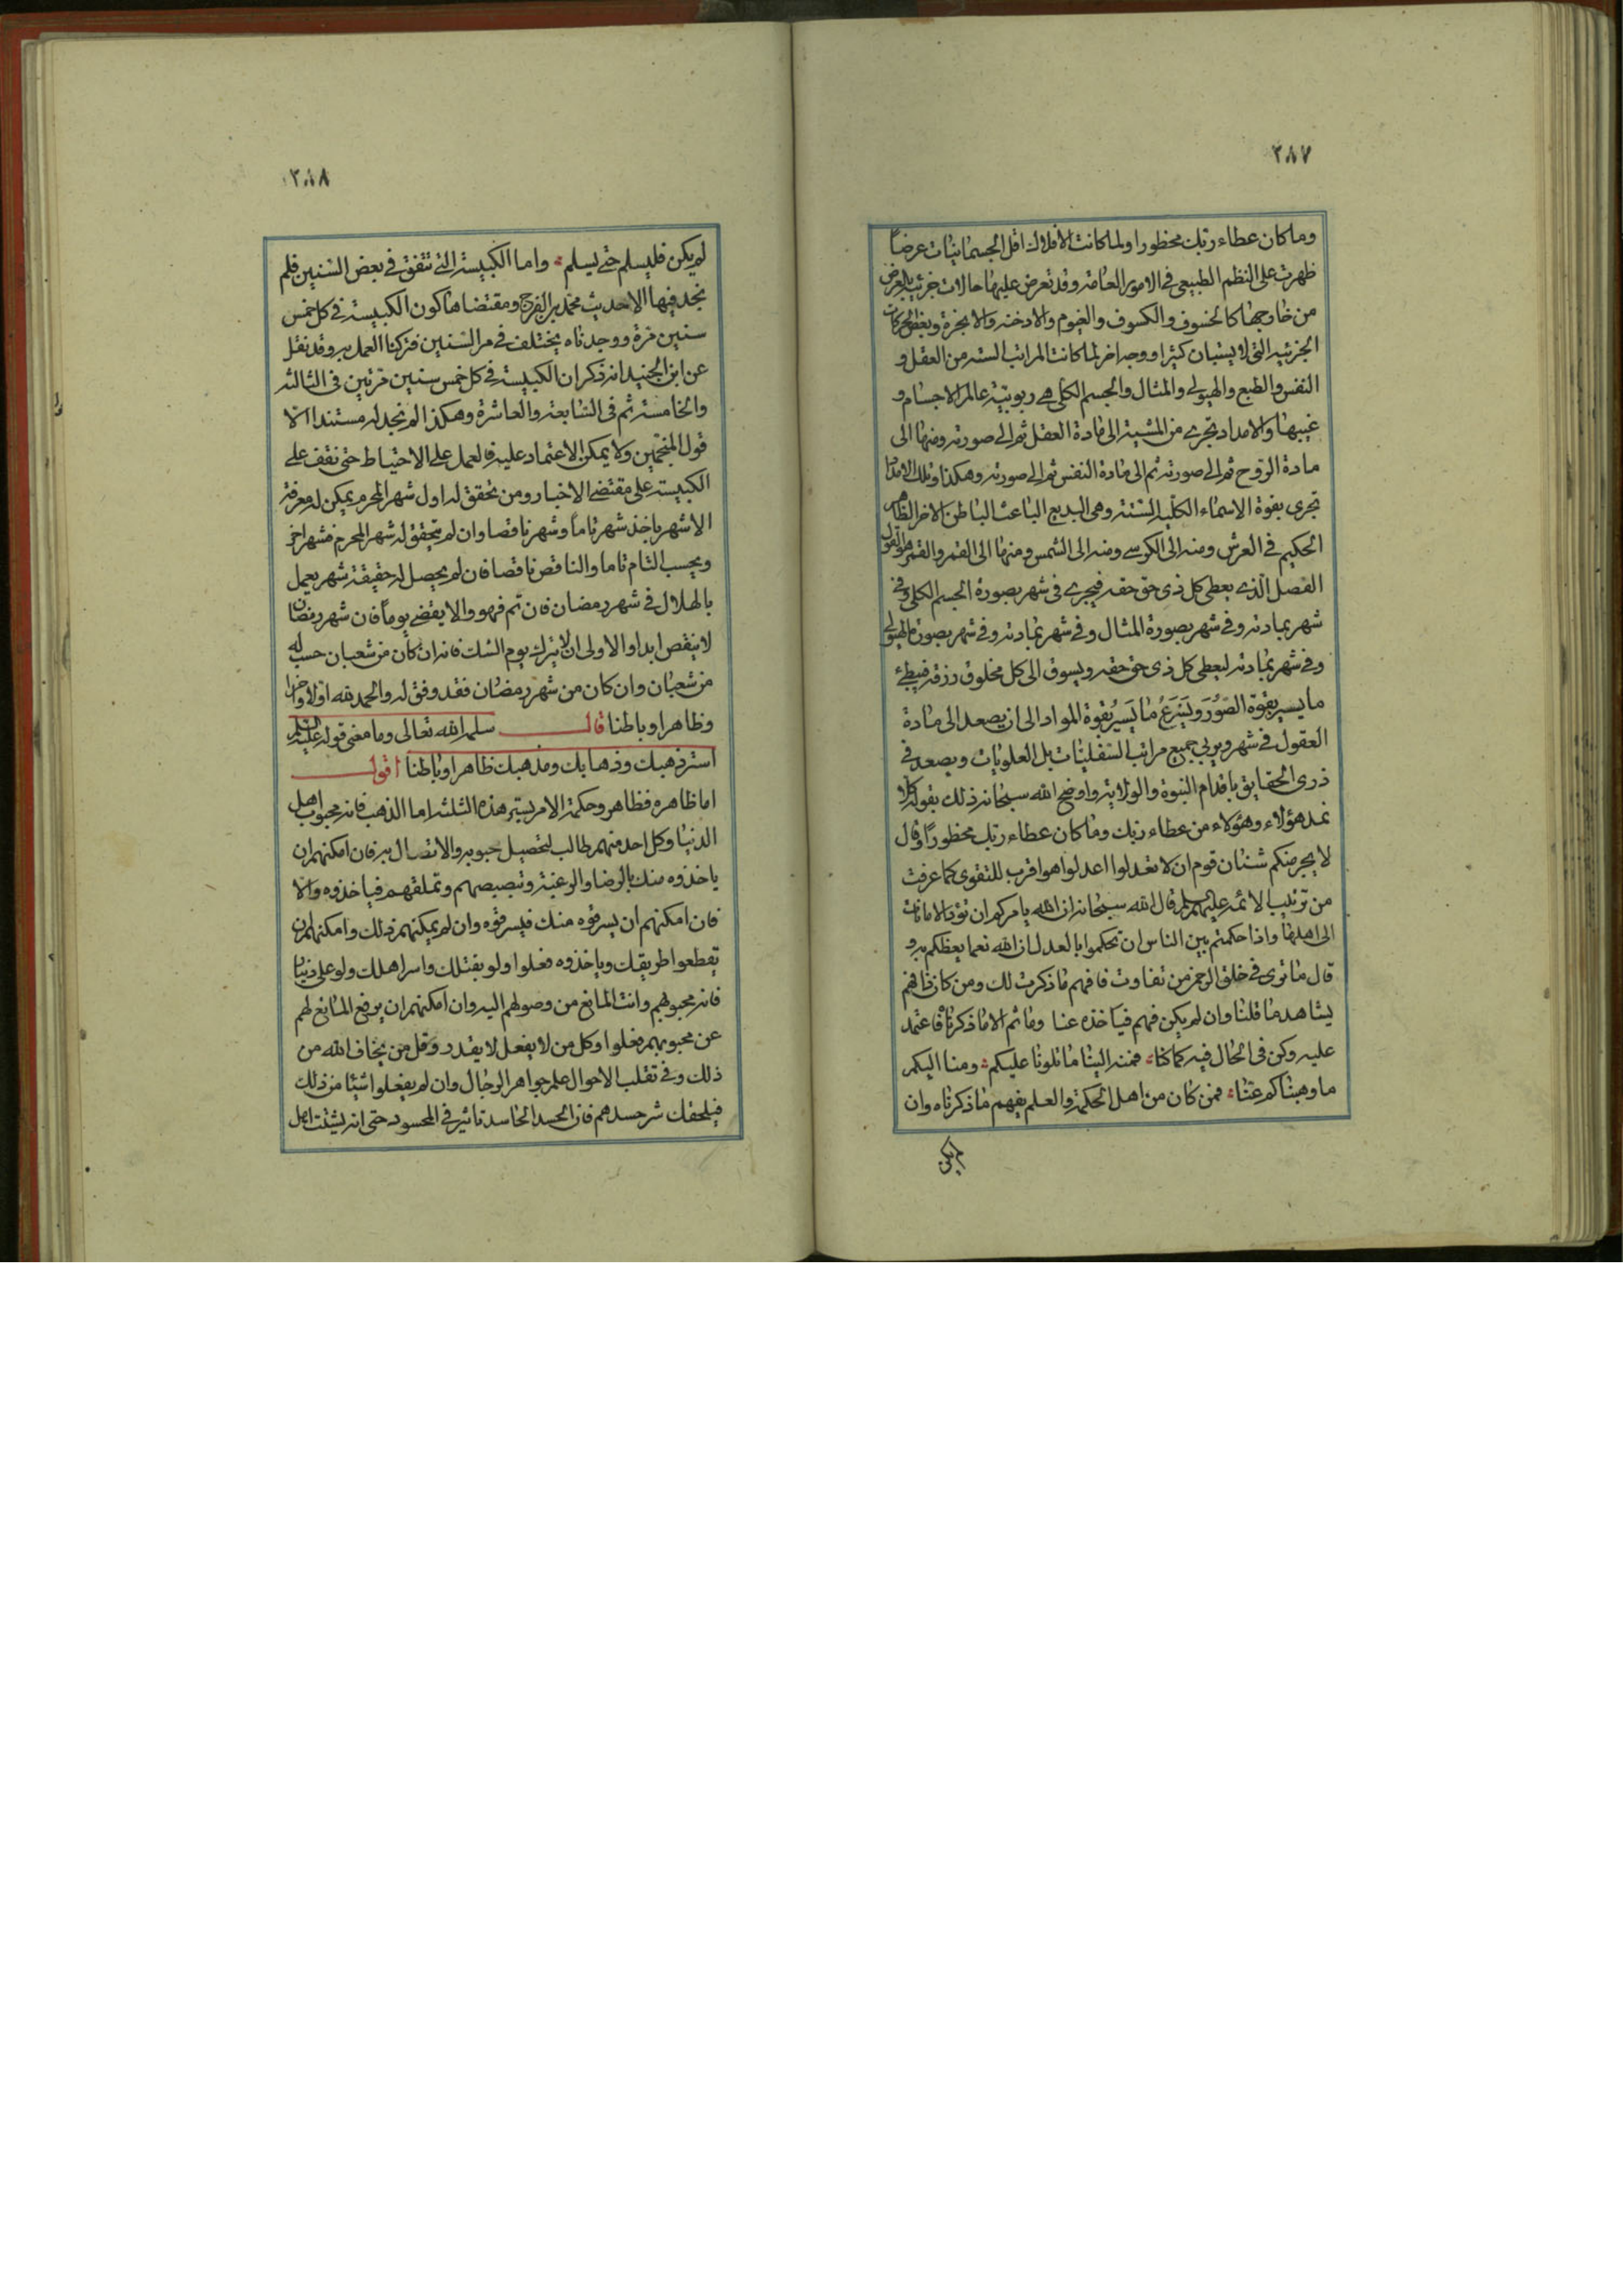 ٢٨٧
وما كان عطاء ربك محظورا ولما كانت الافلاك اقل الجسمانيات عرضاً
ظهرت على النظم الطبيعى فى الامور العامة وقد تعرض عليها حالات جزئية بالعرض
من خارجها كالخسوف والكسوف والغيوم والادخنة والابخرة وبعض الحركات
الجزئية التى لا يستبان كثيرا ووجه اخر لما كانت المراتب الستة من العقل و
النفس والطبع والهيولى والمثال والجسم الكلى هى ربوبية عالم الاجسام و
غيبها والامداد تجرى من المشية الى مادة العقل ثم الى صورته ومنها الى
مادة الروح ثم الى صورته ثم الى مادة النفس ثم الى صورته وهكذا وتلك الامداد
تجرى بقوة الاسماء الكلية الستة وهى البديع الباعث الباطن الاخر الظاهر
الحكيم فى العرش ومنه الى الكرسى ومنه الى الشمس ومنها الى القمر والقمر هو القول
الفصل الذى يعطى كل ذى حق حقه فيجرى فى شهر بصورة الجسم الكلى وفى
شهر بمادته وفى شهر بصورة المثال وفى شهر بمادته وفى شهر بصورة الهيولى
وفى شهر بمادته ليعطى كل ذى حق حقه ويسوق الى كل مخلوق رزقه فيبطئ
ما يسير بقوة الصُّوَر ويَسْرَعُ ما يَسيُر بقوة المواد الى ان يصعد الى مادة
العقول فى شهر ويربى جميع مراتب السفليات بل العلويات ويصعد فى
ذرى الحقايق باقدام النبوة والولاية واوضح الله سبحانه ذلك بقوله كلا
نمد هؤلاء وهؤلاء من عطاء ربك وما كان عطاء ربك محظوراً وقال
لا يجرمنكم شنئان قوم ان لا تعدلوا اعدلوا هو اقرب للتقوى كما عرفت
من ترتيب الائمة عليهم السلم قال الله سبحانه ان الله يامركم ان تؤدوا الامانات
الى اهلها واذا حكمتم بين الناس ان تحكموا بالعدل ان الله نعما يعظكم به و
قال ما ترى فى خلق الرحمن من تفاوت فافهم ما ذكرت لك ومن كان ذا فهم
يشاهد ما قلنا وان لم يكن فهم فياخذه عنا وما ثم الا ما ذكرناه فاعتمد
عليه وكن فى الحال فيه كما كنا فمنه الينا ما تلونا عليكم ومنا اليكم
ما وهبناكم عنا فمن كان من اهل الحكمة والعلم يفهم ما ذكرناه وان
لم يكن
٢٨٨
لم يكن فليسلم حتى يسلم واما الكبيسة التى تتفق فى بعض السنين فلم
نجد فيها الا حديث محمد بن الفرج ومقتضاها كون الكبيسة فى كل خمس
سنين مرة ووجدناه يختلف فى مر السنين فتركنا العمل به وقد نقل
عن ابن الجنيد انه ذكر ان الكبيسة فى كل خمس سنين مرتين فى الثالثة
والخامسة ثم فى السابعة والعاشرة وهكذا لم نجد له مستندا الا
قول المنجمين ولا يمكن الاعتماد عليه فالعمل على الاحتياط حتى نقف على
الكبيسة على مقتضى الاخبار ومن تحقق له اول شهر المحرم يمكن له معرفة
الاشهر ياخذ شهرا تاماً وشهرا ناقصا وان لم يتحقق له شهر المحرم فشهر اخر
ويحسب التام تاما والناقص ناقصا فان لم يحصل له حقيقة شهر يعمل
بالهلال فى شهر رمضان فان تم فهو والا يقضى يوماً فان شهر رمضان
لا ينقص ابدا والاولى ان لا يترك يوم الشك فانه ان كان من شعبان حسب له
من شعبان وان كان من شهر رمضان فقد وفق له والحمد لله اولا واخرا
وظاهرا وباطنا قال سلمه الله تعالى وما معنى قوله عليه السلم
استر ذهبك وذهابك ومذهبك ظاهرا وباطنا اقول
اما ظاهره فظاهر وحكمة الامر بستر هذه الثلثة اما الذهب فانه محبوب اهل
الدنيا وكل احد منهم طالب لتحصيل محبوبه والاتصال به فان امكنهم ان
ياخذوه منك بالرضا والرغبة وتبصيصهم وتملقهم فياخذوه والا
فان امكنهم ان يسرقوه منك فيسرقوه وان لم يمكنهم ذلك وامكنهم ان
يقطعوا طريقك وياخذوه فعلوا ولو بقتلك واسر اهلك ولو على دنيا
فانه محبوبهم وانت المانع من وصولهم اليه وان امكنهم ان يرفع المانع لهم
عن محبوبهم فعلوا وكل من لا يفعل لا يقدر وقل من يخاف الله من
ذلك وفى تقلب الاحوال علم جواهر الرجال وان لم يفعلوا شيئا من ذلك
فيلحقك شر حسدهم فان لحسد الحاسد تاثير فى المحسود حتى انه يشتت اهل